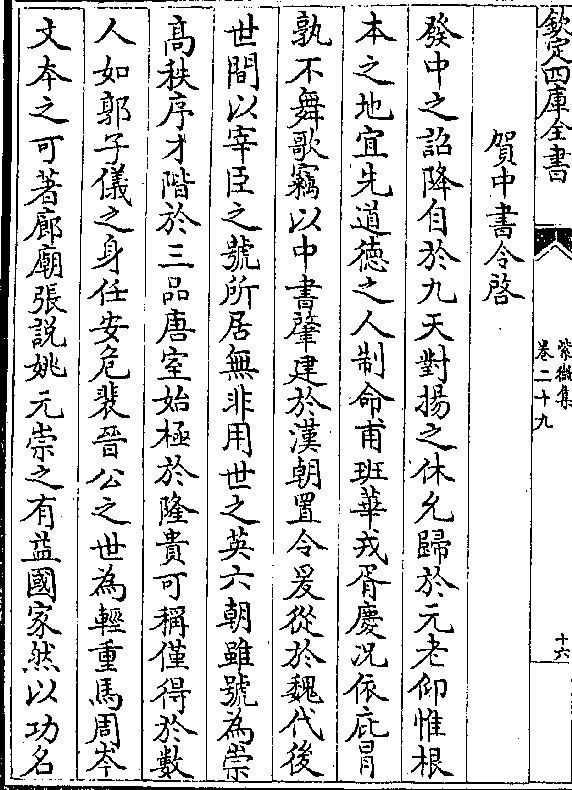 欽定四庫全書
紫微集
卷二十九
十六
賀中書令啓
發中之詔降自於九天對揚之休允歸於元老仰惟根
本之地宜先道德之人制命甫班華戎胥慶况依庇冐
孰不舞歌竊以中書肇建於漢朝置令爰從於魏代後
世間以宰臣之號所居無非用世之英六朝雖號為崇
高秩序才階於三品唐室始極於隆貴可稱僅得於數
人如郭子儀之身任安危裴晉公之世為輕重馬周岑
文本之可著廊廟張說姚元崇之有益國家然以功名